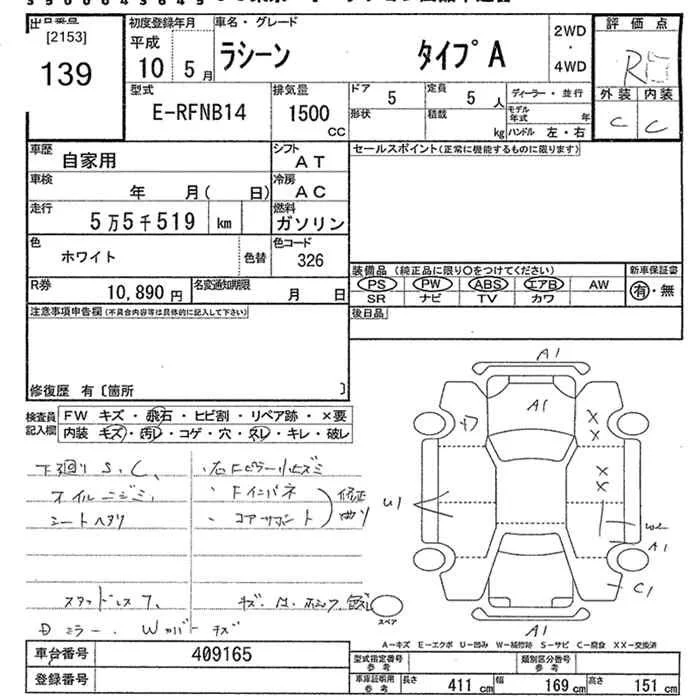 出品番号
[2153]
139
初度登録年月
平成
10 5月
車名・グレード
ラシーン タイプA
2WD
・
4WD
評価点
R
外装 内装
C C
型式
E-RFNB14
排気量
1500
CC
ドア 5
定員 5 人
形状
積載 kg
ディーラー・並行
モデル年式 年
ハンドル 左・右
車歴
自家用
シフト
AT
車検
年 月( 日)
冷房
AC
走行
5万5千519 km
燃料
ガソリン
色
ホワイト
色替
色コード
326
R券
10,890 円
名変通知期限
月 日
セールスポイント(正常に機能するものに限ります)
装備品 (純正品に限り○をつけてください)
PS PW ABS エアB AW
SR ナビ TV カワ
新車保証書
有・無
後日品
注意事項申告欄(不具合内容等は具体的に記入して下さい)
修復歴 有〔箇所 〕
検査員記入欄
FW キズ・飛石・ヒビ割・リペア跡・×要
内装 キズ・汚レ・コゲ・穴・スレ・キレ・破レ
下廻りS、C、
オイルニジミ、
シートヘタリ
・右Fピラー
・Fインパネ
・コアサポート
修正
曲り
スタッドレス
ミラー、Wカバーキズ
A1
A1
U1
X
X
X
X
W2
A1
C1
A1
スペア
A=キズ E=エクボ U=凹み W=補修跡 S=サビ C=腐食 XX=交換済
車台番号 409165
登録番号
型式指定番号
参考
類別区分番号
参考
車庫証明用
参考
長さ 411 cm 幅 169 cm 高さ 151 cm